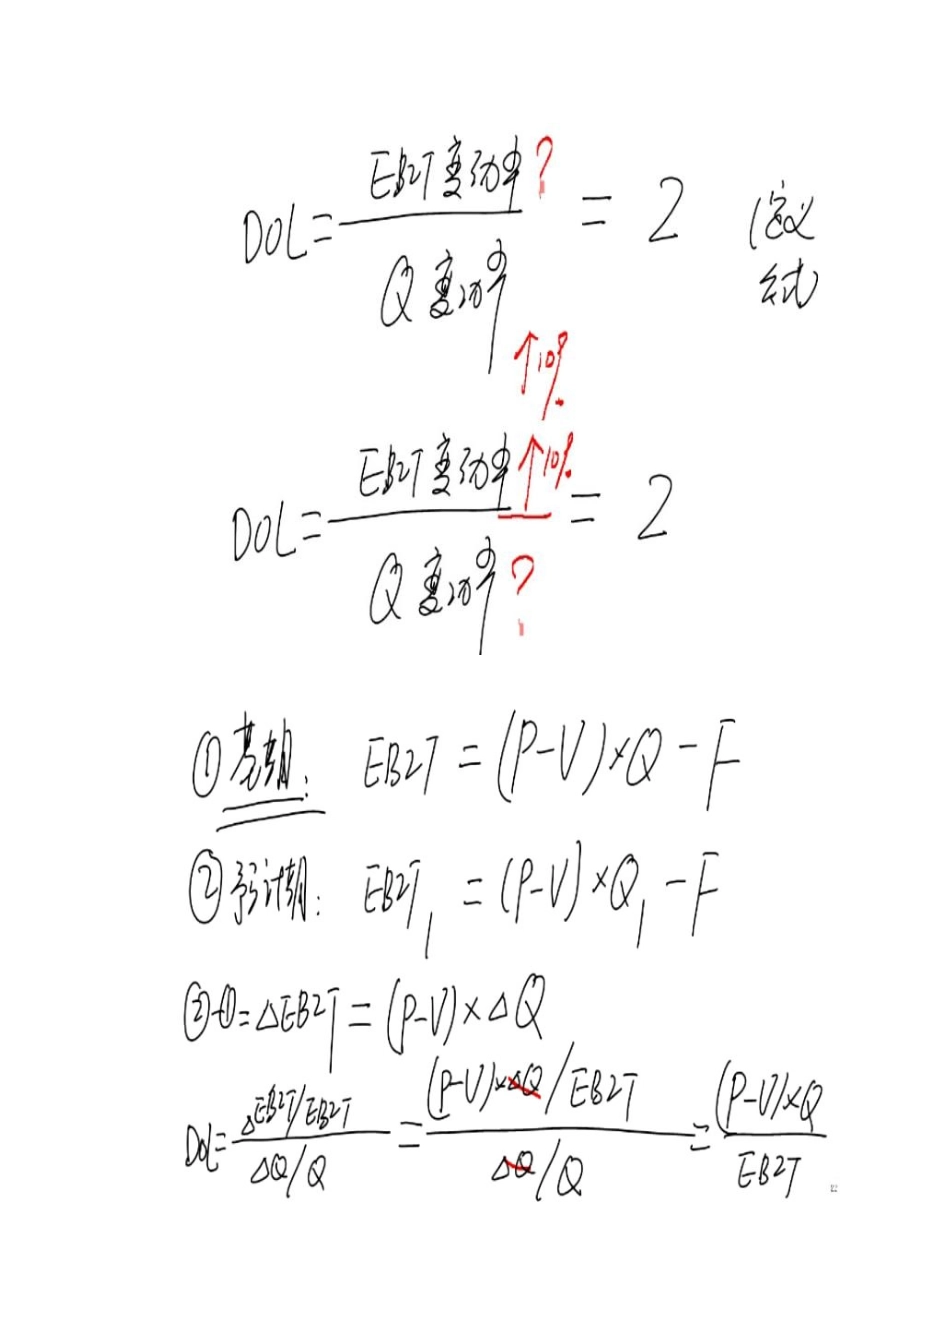 DOL = EBIT变动率? / Q变动率 = 2 (定义
公式)
↑10%
DOL = EBIT变动率↑10% / Q变动率? = 2
①基期: EBIT = (P-V)×Q - F
②预计期: EBIT₁ = (P-V)×Q₁ - F
②-①= △EBIT = (P-V)×△Q
DOL = △EBIT/EBIT / △Q/Q = (P-V)×△Q/EBIT / △Q/Q = (P-V)×Q / EBIT